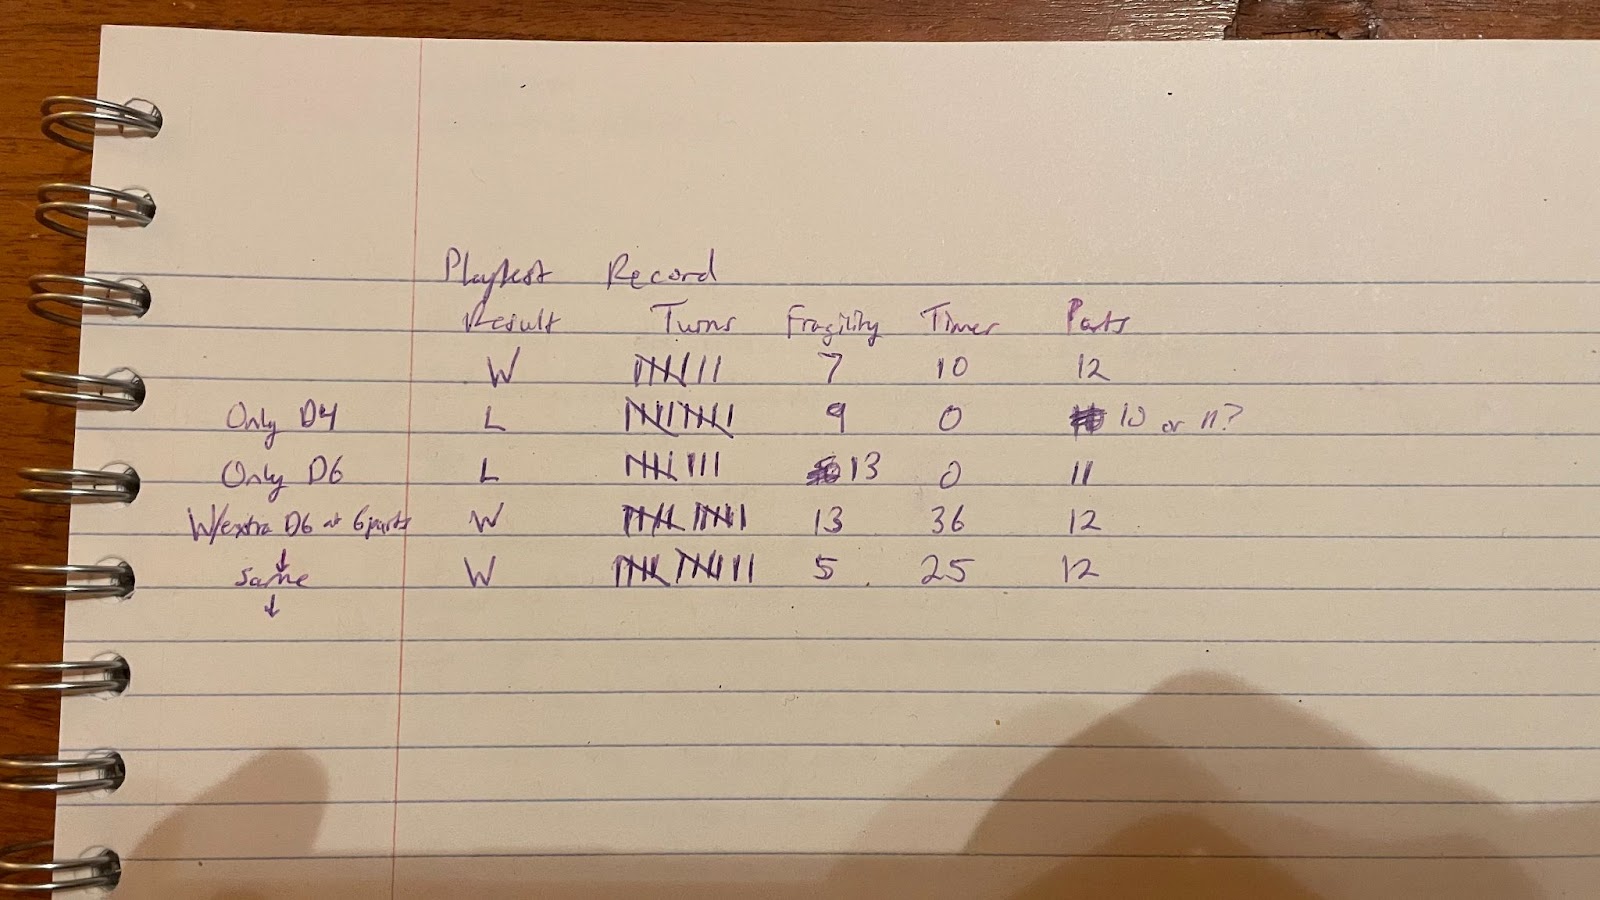 Playtest Record
Result Turns Fragility Timer Parts
W 7 10 12
Only D4 L 9 0 10 or 11?
Only D6 L 13 0 11
W/extra D6 at 6 parts W 13 36 12
↓
Same W 5 25 12
↓